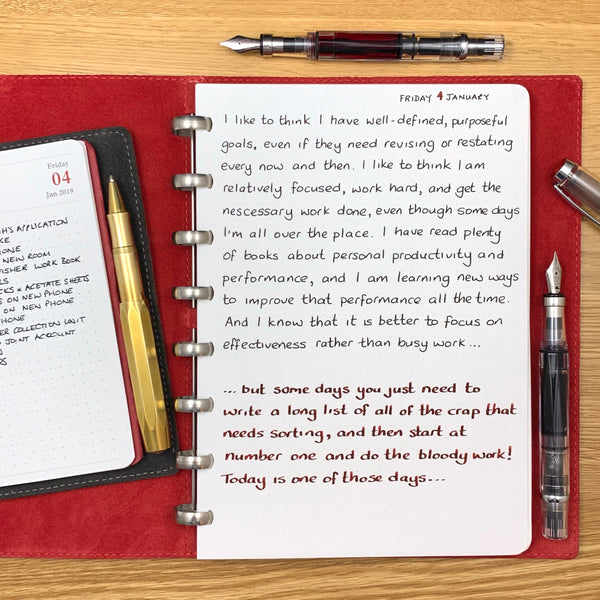 FRIDAY 4 JANUARY
I like to think I have well-defined, purposeful
goals, even if they need revising or restating
every now and then. I like to think I am
relatively focused, work hard, and get the
nescessary work done, even though some days
I'm all over the place. I have read plenty
of books about personal productivity and
performance, and I am learning new ways
to improve that performance all the time.
And I know that it is better to focus on
effectiveness rather than busy work...
... but some days you just need to
write a long list of all of the crap that
needs sorting, and then start at
number one and do the bloody work!
Today is one of those days...
Friday
04
Jan 2019
APPLICATION
NEW ROOM
FISHER WORK BOOK
& ACETATE SHEETS
ON NEW PHONE
ON NEW PHONE
PHONE
COLLECTION UNIT
JOINT ACCOUNT